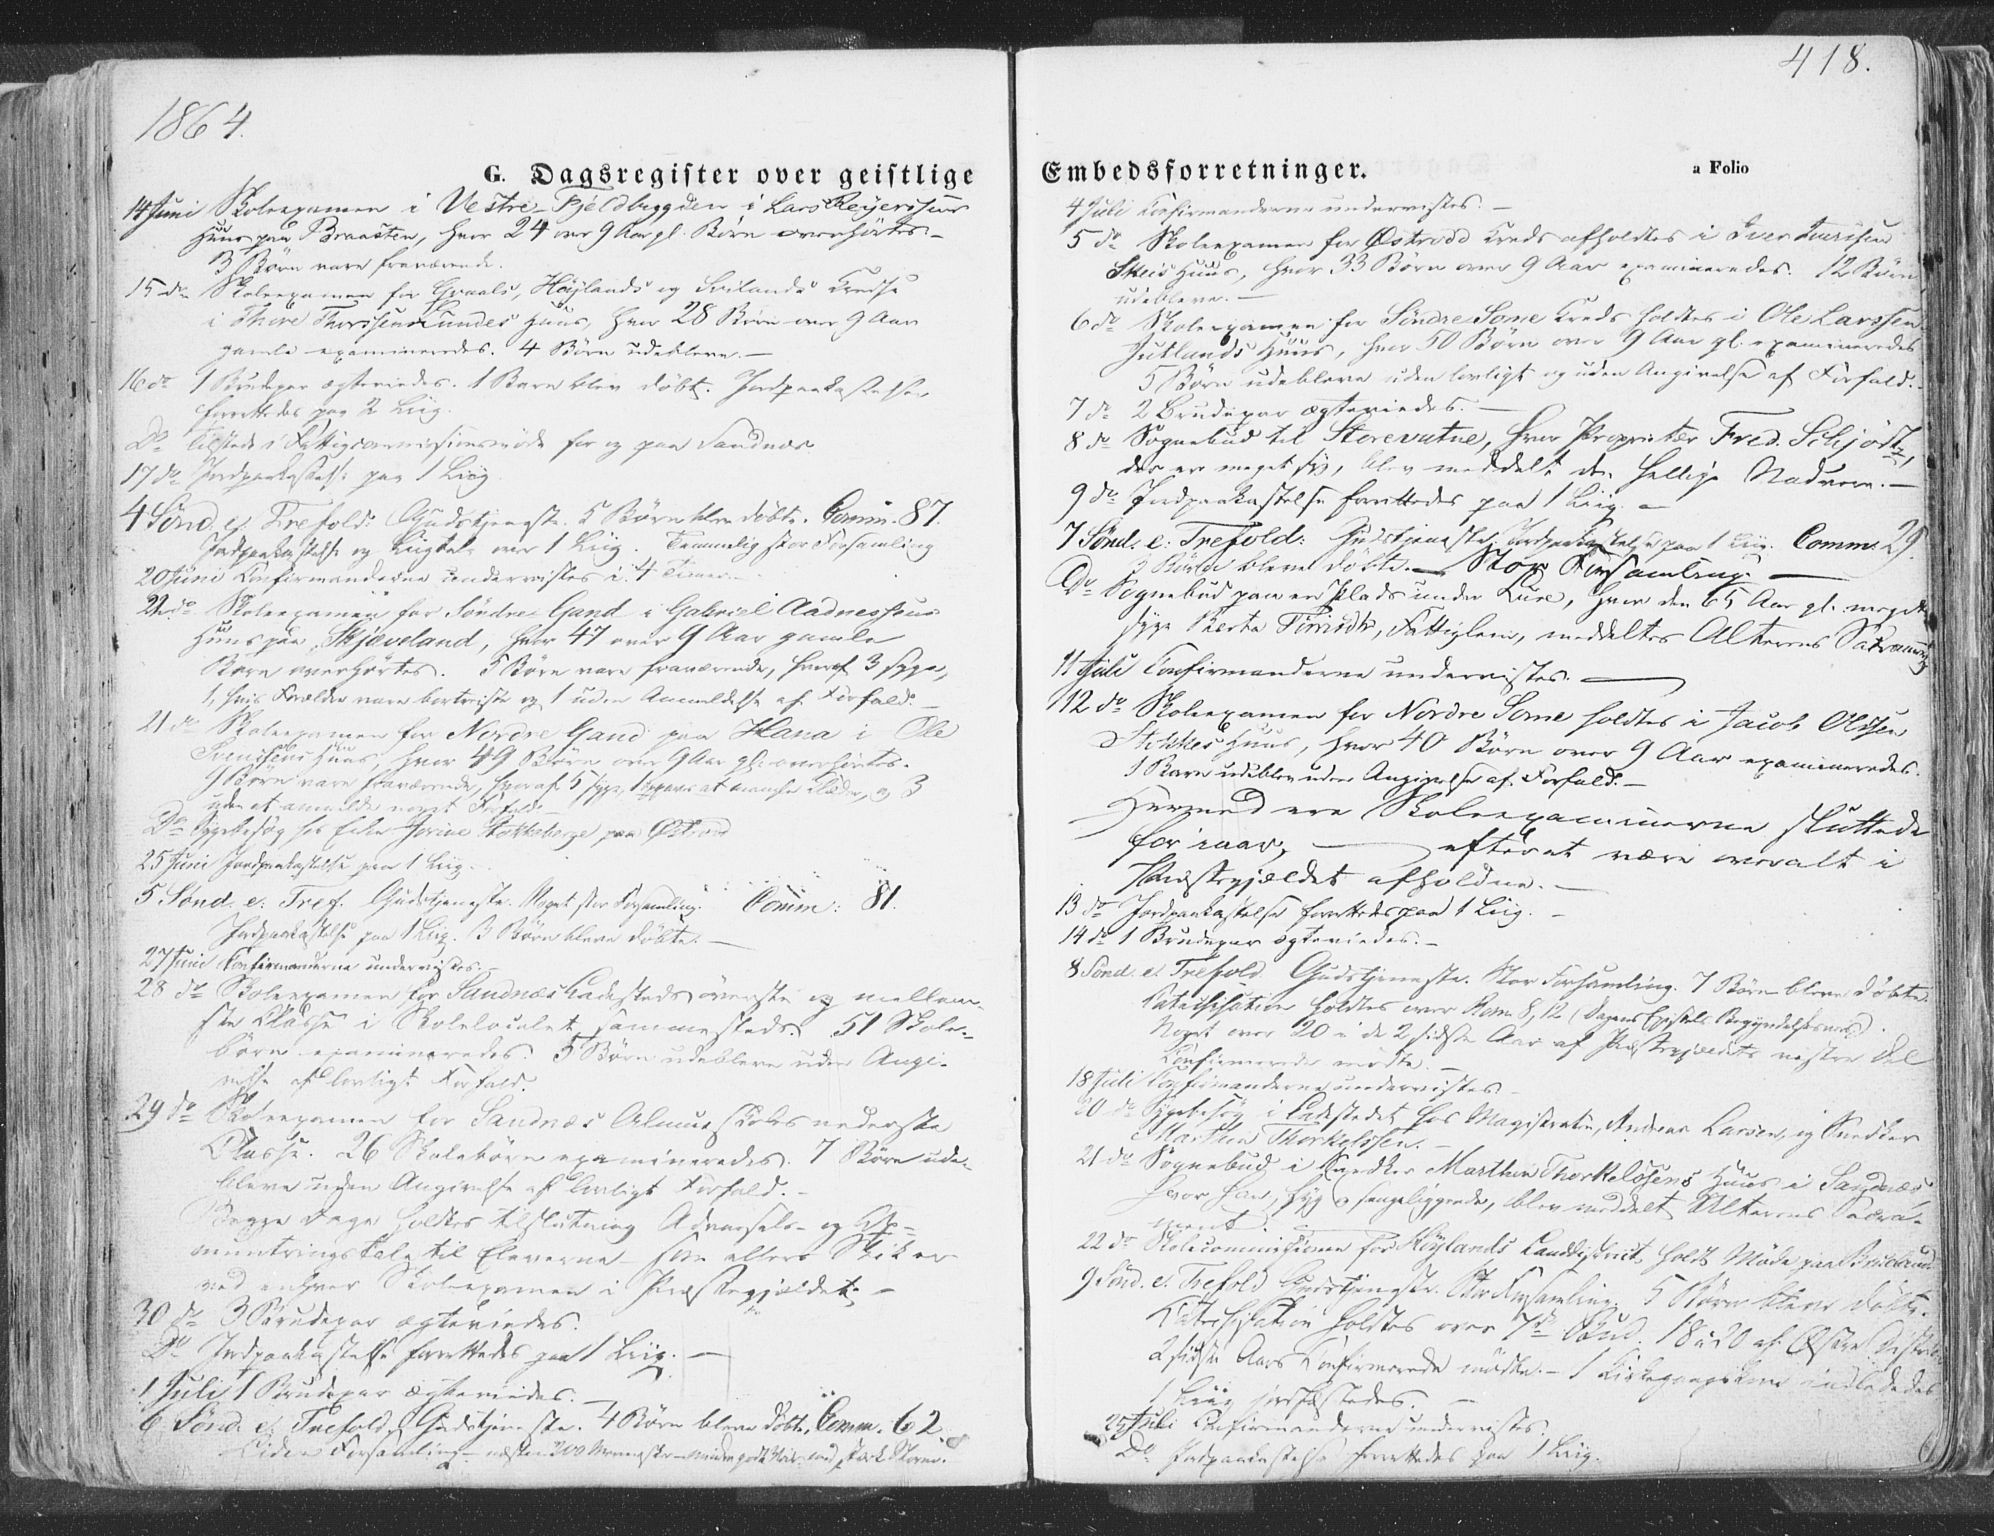 1864.
G. Dagsregister over geistlige
14 Juni Skoleexamen i Vestre-Fjeldbygden i Lars Reyerssens
Huus paa Braasten, hvor 24 over 9 Aar gl. Børn overhørtes –
3 Børn vare fraværende.
15 do Skoleexamen for Høylands og Kredse
i Thore Huus, hvor 28 Børn over 9 Aar
gamle examineredes. 4 Børn udebleve. –
16 do 1 Brudepar ægteviedes. 1 Barn blev døbt. Jordpaakastelsen
forrettedes paa 2 Liig.
Do Tilstede i Fattigcommissionsmøde for og paa Sandnæs
17 do Jordpaakastelse paa 1 Liig
4 Sønd. e. Trefold: Gudstjeneste. 5 Børn bleve døbte. Comm. 87.
Jordpaakastelse og Liigtale over 1 Liig. Temmelig stor Forsamling
20 Juni Confirmanderne undervistes i 4 Timer –
22 do Skoleexamen for Søndre Gand i Gabriel Aadnessens
Huus paa Skjæveland, hvor 47 over 9 Aar gamle
Børn overhørtes. 5 Børn vare fraværende, hvoraf 3 syge,
1, hvis Forældre vare bortreiste og 1 uden Anmeldelse af Forfald. –
21 do Skoleexamen for Nordre Gand paa Hana i Ole
Huus, hvor 49 Børn over 9 Aar gl. overhørtes.
9 Børn vare fraværende, hvoraf 5 syge, 1 at mangle Klæder, og 3
uden at anmelde noget Forfald –
Do Sygebesøg hos Enke Jorine Stokkeberge paa Østraad
25 Juni Jordpaakastelse paa 1 Liig
5 Sønd. e. Tref. Gudstjeneste. Noget stor Forsamling. Comm: 81.
Jordpaakastelse paa 1 Liig. 3 Børn bleve døbte. –
27 Juni Confirmanderne undervistes. –
28 do Skoleexamen for Sandnæs Ladesteds øverste og mellem-
ste Classe i Skolelocalet sammesteds. 51 Skole-
børn examineredes. 5 Børn udebleve uden Angi-
velse af lovligt Forfald.
29 do Skoleexamen for Sandnæs Almueskoles nederste
Classe. 26 Skolebørn examineredes. 7 Børn ude-
bleve uden Angivelse af lovligt Forfald. –
Begge Dage holdtes tilslutning Advarsels- og Op-
muntringstale til Eleverne – som ellers Skik er
ved enhver Skoleexamen i Præstegjældet. –
30 do 3 Brudepar ægteviedes.
Do Jordpaakastelse forrettedes paa 1 Liig. –
1 Juli 1 Brudepar ægteviedes. –
6 Sønd. e. Trefold. Gudstjeneste. 4 Børn bleve døbte. Comm. 62.
Liden Forsamling – næsten 300 Mennesker – mindre godt Veir med stærk Storm.
418.
Embedsforretninger.
a Folio
4 Juli Confirmanderne undervistes. –
5 do Skoleexamen for Østraad Kreds afholdtes i Iver Iversen
Skeis Huus, hvor 33 Børn over 9 Aar examineredes. 12 Børn
udebleve. –
6 do Skoleexamen for Søndre Some Kreds holdtes i Ole Larssen
Jutlands Huus, hvor 50 Børn over 9 Aar gl. examineredes
5 Børn udebleve uden lovligt og uden Angivelse af Forfald. –
7 do 2 Brudepar ægteviedes. –
8 do Sognebud til Storevatne, hvor Proprietær Fred. Schjødt,
der er meget syg, blev meddelt den hellige Nadvere. –
9 do Jordpaakastelse forrettedes paa 1 Liig. –
7 Sønd. e. Trefold: Gudstjeneste. Jordpaakastelse paa 1 Liig. Comm: 29.
3 Børn bleve døbte. – Stor Forsamling. –
Do Sognebud paa en Plads under Lure, hvor den 65 Aar gl. meget
syge Berta Fattiglem, meddeltes Alterens Sakrament
11 Juli Confirmanderne undervistes. –
12 do Skoleexamen for Nordre Some holdtes i Jacob Olssen
Stokkes Huus, hvor 40 Børn over 9 Aar examineredes.
1 Barn udeblev uden Angivelse af Forfald. –
Hermed ere Skoleexaminerne sluttede
for iaar, – efterat være overalt i
Præstegjældet afholdne. –
13 do Jordpaakastelse forrettedes paa 1 Liig. –
14 do 1 Brudepar ægteviedes. –
8 Sønd. e. Trefold. Gudstjeneste. Stor Forsamling. 7 Børn bleve døbte.
Catechisation holdtes over Rom. 8, 12 (Dagens Epistels Begyndelsesvers).
Noget over 20 i de 2 sidste Aar af Præstegjældets vestre Del
Confirmerede mødte. –
18 Juli Confirmanderne undervistes –
20 do Sygebesøg i Ladestedet hos Magistrate, Andreas Larsen, og Snedker
Marthin Thorkelssen. –
21 do Sognebud i Snedker Marthin Thorkelssens Huus i Sandnæs,
hvor han, syg og sengeliggende, blev meddelt Alterens Sacra-
ment. –
22 do Skolecommissionen for Høylands Landdistrict holdt Møde paa
9 Sønd. e. Trefold Gudstjeneste. Stor Forsamling. 5 Børn bleve døbte.
Catechisation holdtes over 7de Bud. 18 a 20 af Østre Distrikts
2 sidste Aars Confirmerede mødte. – 1 Kirkegangskone indlededes
1 Liig jordfæstedes. –
25 Juli Confirmanderne undervistes.
Do Jordpaakastelse forrettedes paa 1 Liig.